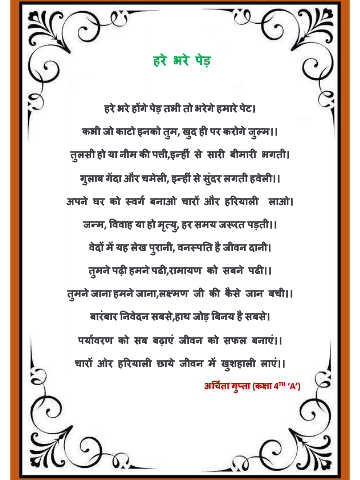 हरे भरे पेड़
हरे भरे होंगे पेड़ तभी तो भरेगे हमारे पेट।
कभी जो काटो इनको तुम, खुद ही पर करोगे जुल्म।।
तुलसी हो या नीम की पत्ती,इन्हीं से सारी बीमारी भगती।
गुलाब गेंदा और चमेली, इन्हीं से सुंदर लगती हवेली।।
अपने घर को स्वर्ग बनाओ चारों और हरियाली लाओ।
जन्म, विवाह या हो मृत्यु, हर समय जरूरत पड़ती।।
वेदों में यह लेख पुरानी, वनस्पति है जीवन दानी।
तुमने पढ़ी हमने पढी,रामायण को सबने पढी।।
तुमने जाना हमने जाना,लक्ष्मण जी की कैसे जान बची।।
बारंबार निवेदन सबसे,हाथ जोड़ बिनय है सबसे।
पर्यावरण को सब बढ़ाएं जीवन को सफल बनाएं।।
चारों ओर हरियाली छाये जीवन में खुशहाली लाएं।।
अर्चिता गुप्ता (कक्षा 4TH ‘A’)